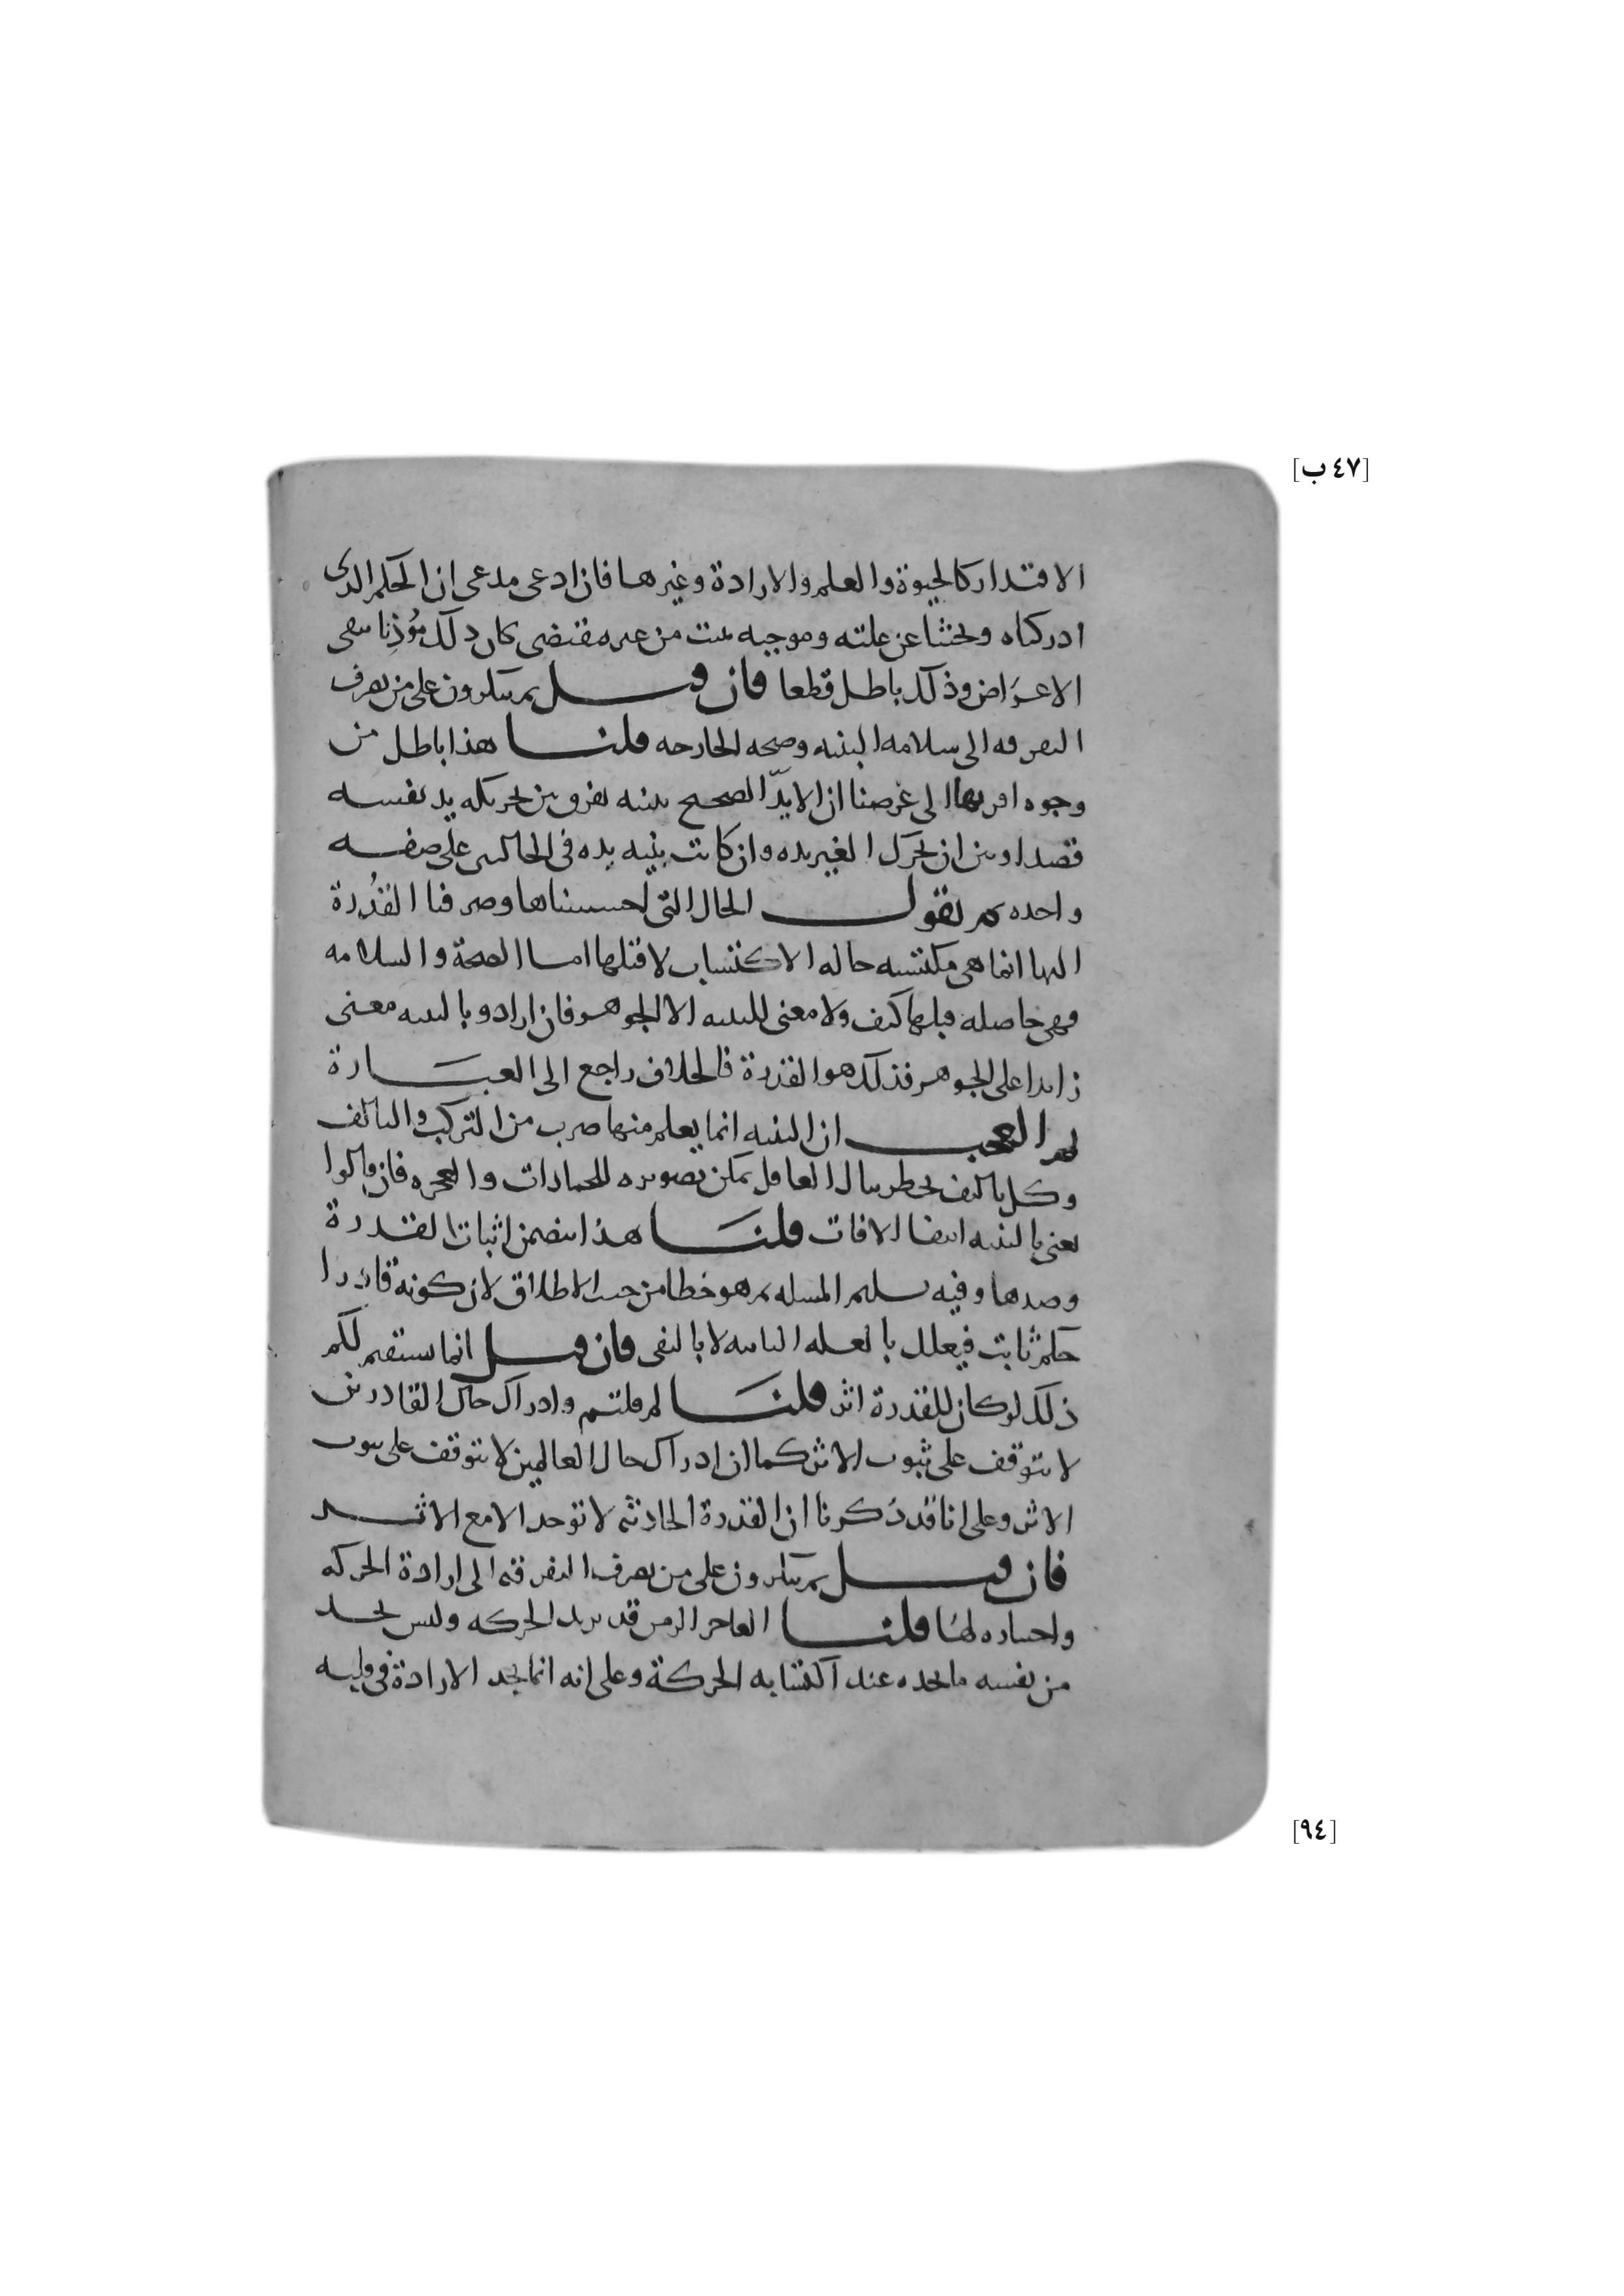 [٤٧ ب]
الاقتدار كالحيوة والعلم والارادة وغيرها فان ادعى مدعى ان الحكم الذى
ادركناه وبحثنا عن علته وموجبه يثبت من غير مقتضى كان ذلك مُوذِنا بنفى
الاعراض وذلك باطل قطعا فان قيل بم تنكرون على من يصرف
التفرقه الى سلامه البنيه وصحه الجارحه قلنا هذا باطل من
وجوه اقربها الى غرضنا ان الايدّ الصحيح بنيته يفرق بين تحريكه يد نفسه
قصدا وبين ان يحرك الغير يده وان كانت بنيه يده فى الحالتين على صفه
واحده ثم نقول الحال التى احسسناها وصرفنا القُدرة
اليها انما هى مكتسبه حاله الاكتساب لا قبلها اما الصحة والسلامه
فهى حاصله قبلها كيف ولا معنى للبنيه الا الجوهر فان ارادو بالبنيه معنى
زايدا على الجوهر فذلك هو القدرة فالخلاف راجع الى العبارة
ثم العجب ان البنيه انما يعلم منها ضرب من التركيب والتاليف
وكل تاليف يخطر ببال العاقل يمكن تصويره للجمادات والعجزه فان قالوا
يعنى بالبنيه انتفا الافات قلنا هذا يتضمن اثبات القدرة
وضدها وفيه تسليم المسله ثم هو خطا من حيث الاطلاق لان كونه قادرا
حكم ثابت فيعلل بالعله الثابته لا بالنفى فان قيل انما يستقيم لكم
ذلك لو كان للقدرة اثر قلنا لم قلتم وادراك حال القادرين
لا يتوقف على ثبوت الاثر كما ان ادراك حال العالمين لا يتوقف على ثبوت
الاثر وعلى انا قد ذكرنا ان القدرة الحادثه لا توجد الا مع الاثر
فان قيل بم تنكرون على من يصرف التفرقه الى ارادة الحركه
واختياره لها قلنا العاجز الزمن قد يريد الحركه وليس يجد
من نفسه ما يجده عند اكتسابه الحركة وعلى انه انما يجد الارادة فى قلبه
[٩٤]